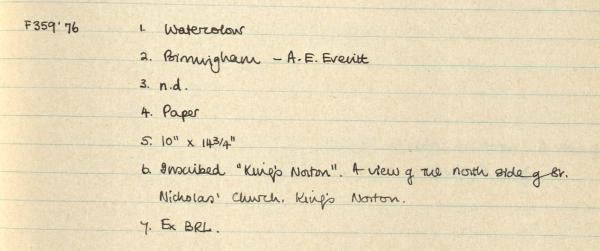 F359'76 1. Watercolour
2. Birmingham - A.E. Everitt
3. n.d.
4. Paper
5. 10" x 14 3/4"
6. Inscribed "King's Norton". A view of the north side of St.
Nicholas' Church, King's Norton.
7. Ex BRL.